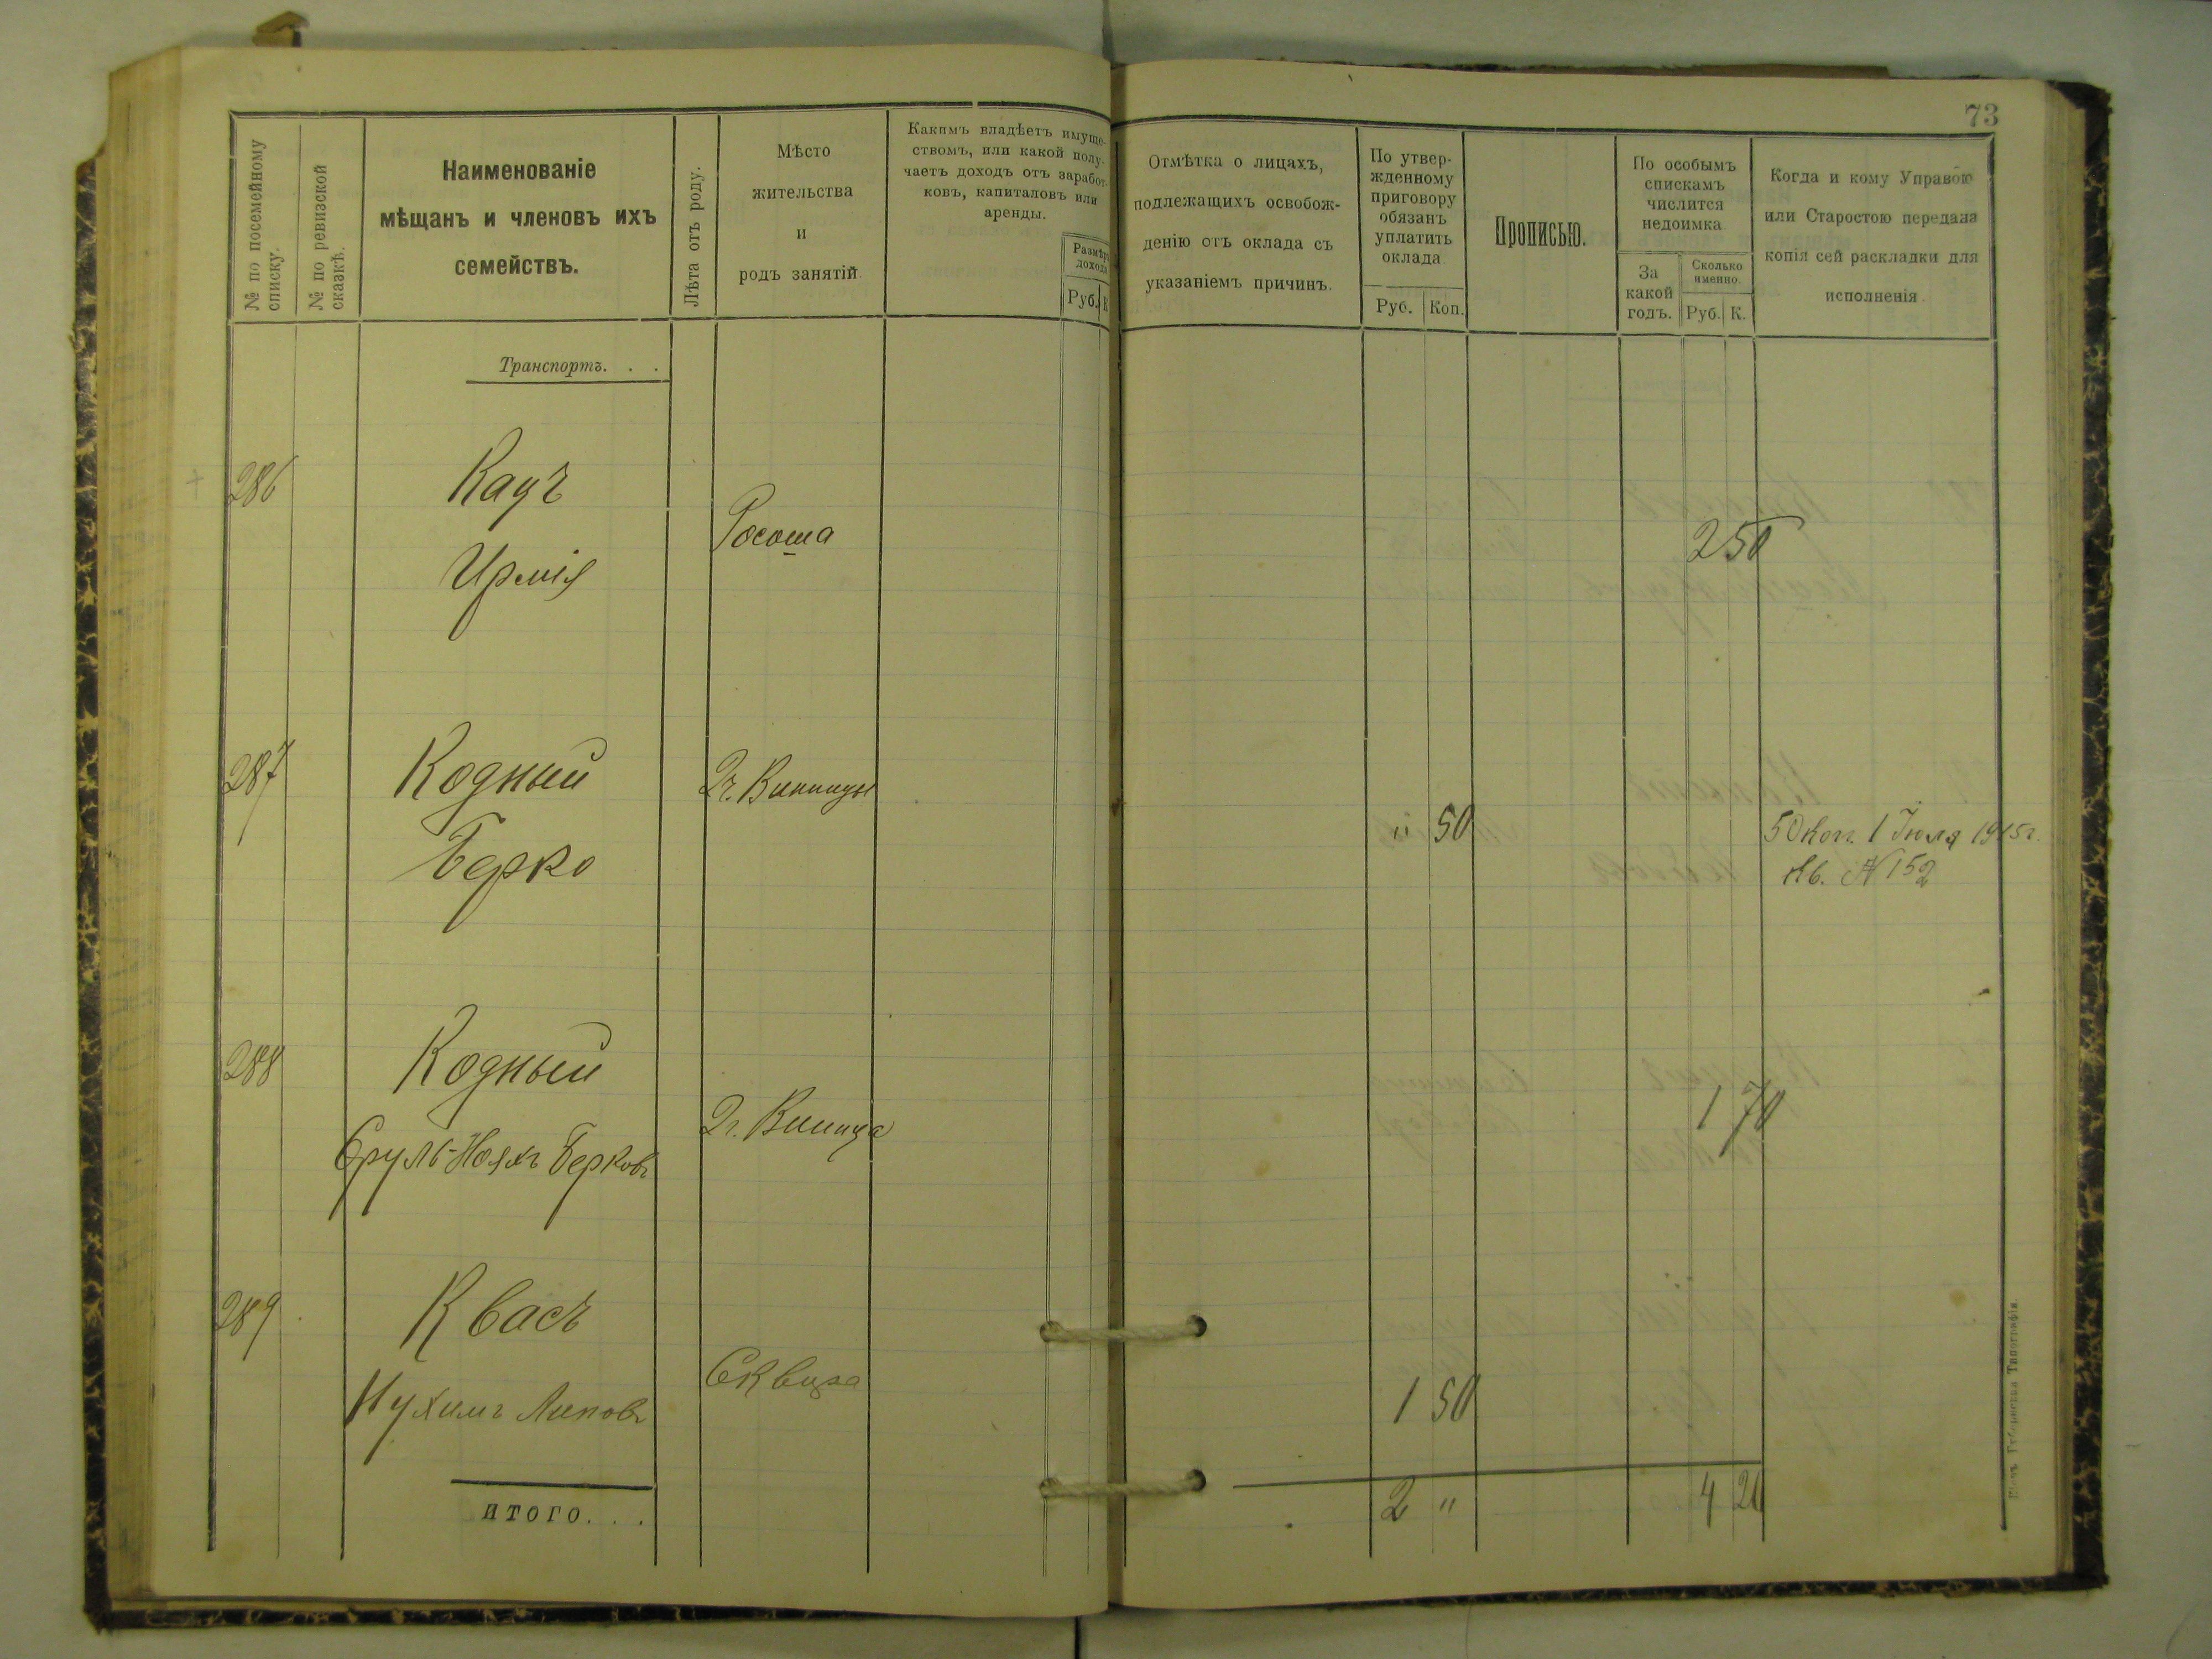 73
№ по посемейному
списку.
№ по ревизской
сказкѣ.
Наименованіе
мѣщанъ и членовъ ихъ
семействъ.
Лѣта отъ роду.
Мѣсто
жительства
и
родъ занятій.
Какимъ владѣетъ имуще-
ствомъ, или какой полу-
чаетъ доходъ отъ заработ-
ковъ, капиталовъ или
аренды.
Размѣръ
дохода
Руб. К
Отмѣтка о лицахъ,
подлежащихъ освобож-
денію отъ оклада съ
указаніемъ причинъ.
По утвер-
жденному
приговору
обязанъ
уплатить
оклада
Руб. Коп.
Прописью.
По особымъ
спискамъ
числится
недоимка
За
какой
годъ.
Сколько
именно.
Руб. К.
Когда и кому Управою
или Старостою передана
копія сей раскладки для
исполненія.
Транспортъ. . .
286 Кацъ
Ирмія
Росоша
2 50
287 Кодный
Берко
Винницы
" 50
50 коп. 1 Іюля 1915г.
Кв. № 152
288 Кодный
Сруль-Нояхъ Берковъ
Винница
1 70
289 Квасъ
Нухимъ Липовъ
Сквира
1 50
ИТОГО. . .
2 "
4 20
Кіевъ Губернская Типографія.